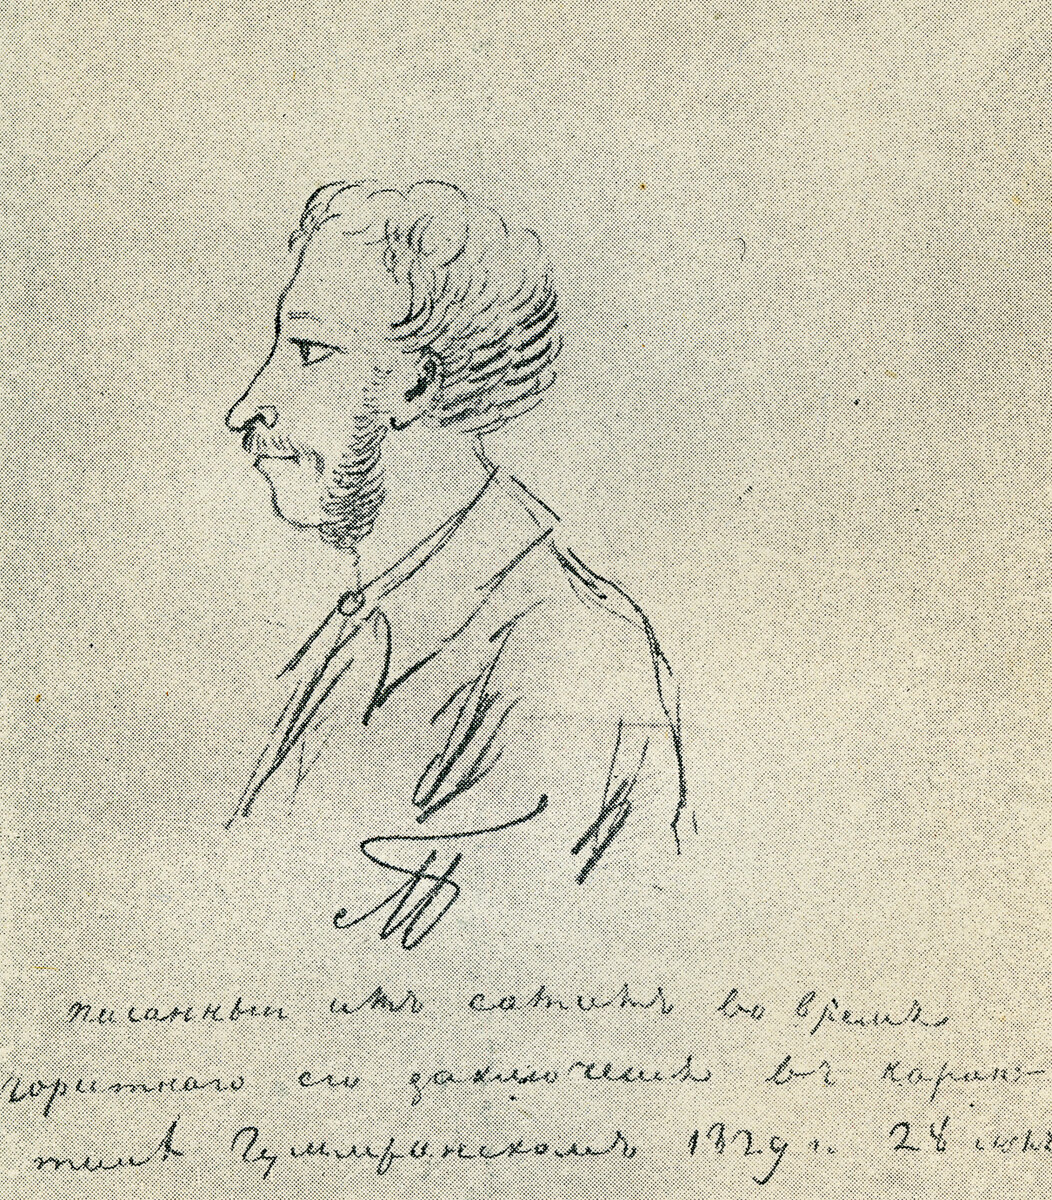 писанный имъ самимъ во время
горестнаго его заключенія въ каран-
тинѣ Гуммринскомъ 1829 г. 28